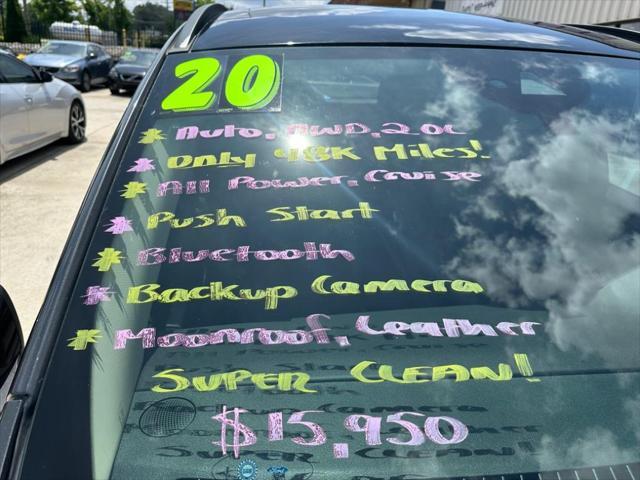 20
Auto, AWD, 2.0L
Only 98K Miles!
All Power, Cruise
Push Start
Bluetooth
Backup Camera
Moonroof, Leather
Super Clean!
$15,950